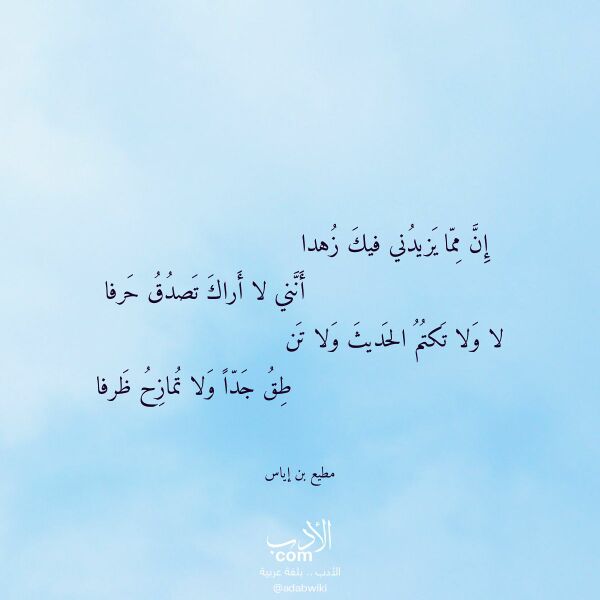 إِنَّ مِمّا يَزيدُني فيكَ زُهدا
أَنَّني لا أَراكَ تَصدُقُ حَرفا
لا وَلا تَكتُمُ الحَديثَ وَلا تَن
طِقُ جَدّاً وَلا تُمازِحُ ظَرفا
مطيع بن إياس
الأدب
.com
الأدب .. بلغة عربية
@adabwiki